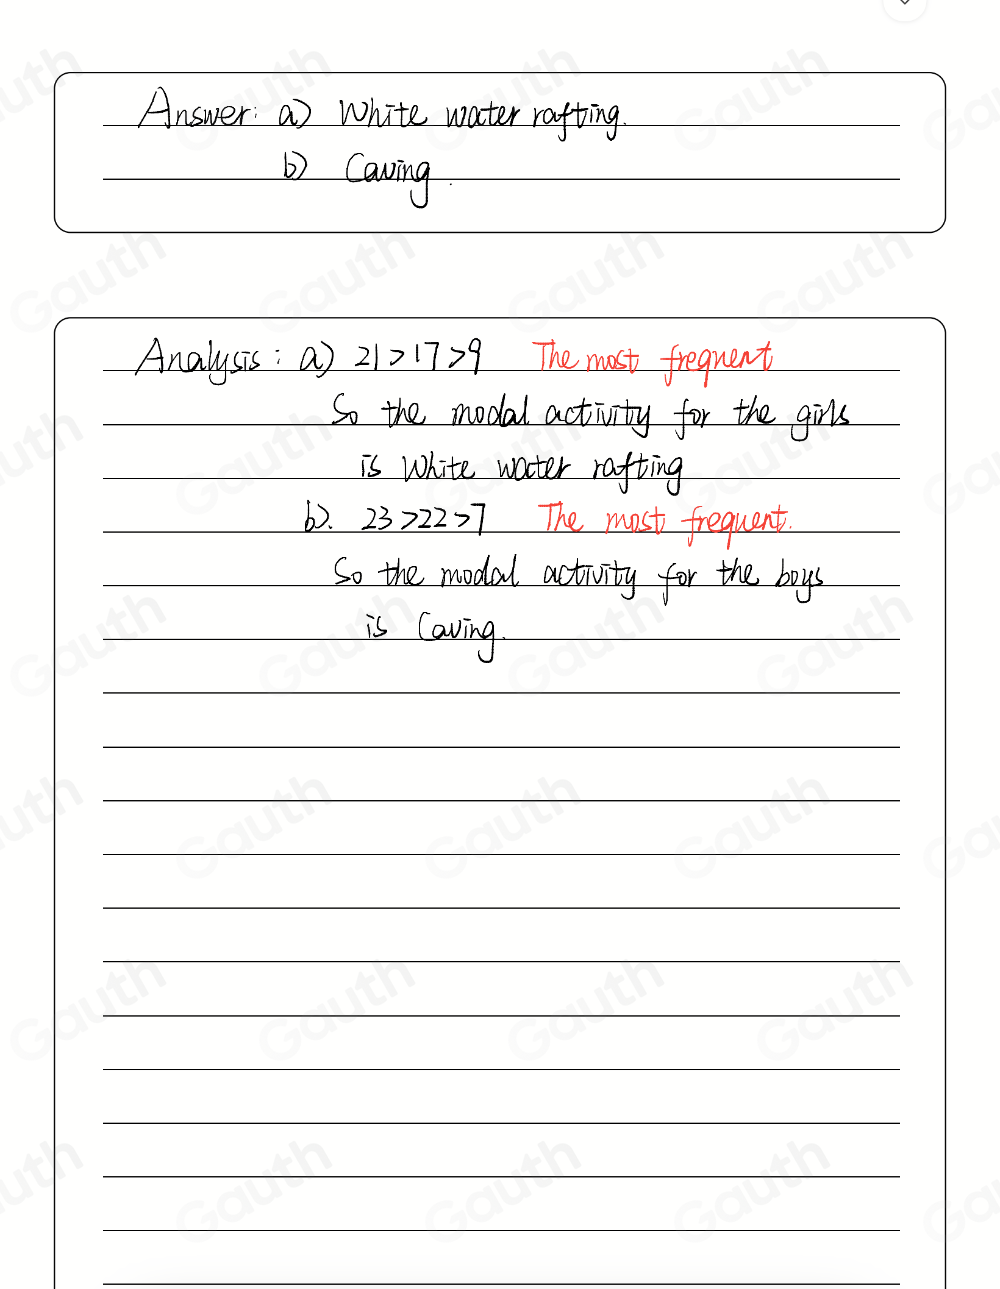 Answer: a) White water rafting.
b) Caving.
Analysis: a) 21>17>9 The most frequent
So the modal activity for the girls
is White water rafting
b). 23>22>7 The most frequent.
So the modal activity for the boys
is Caving.